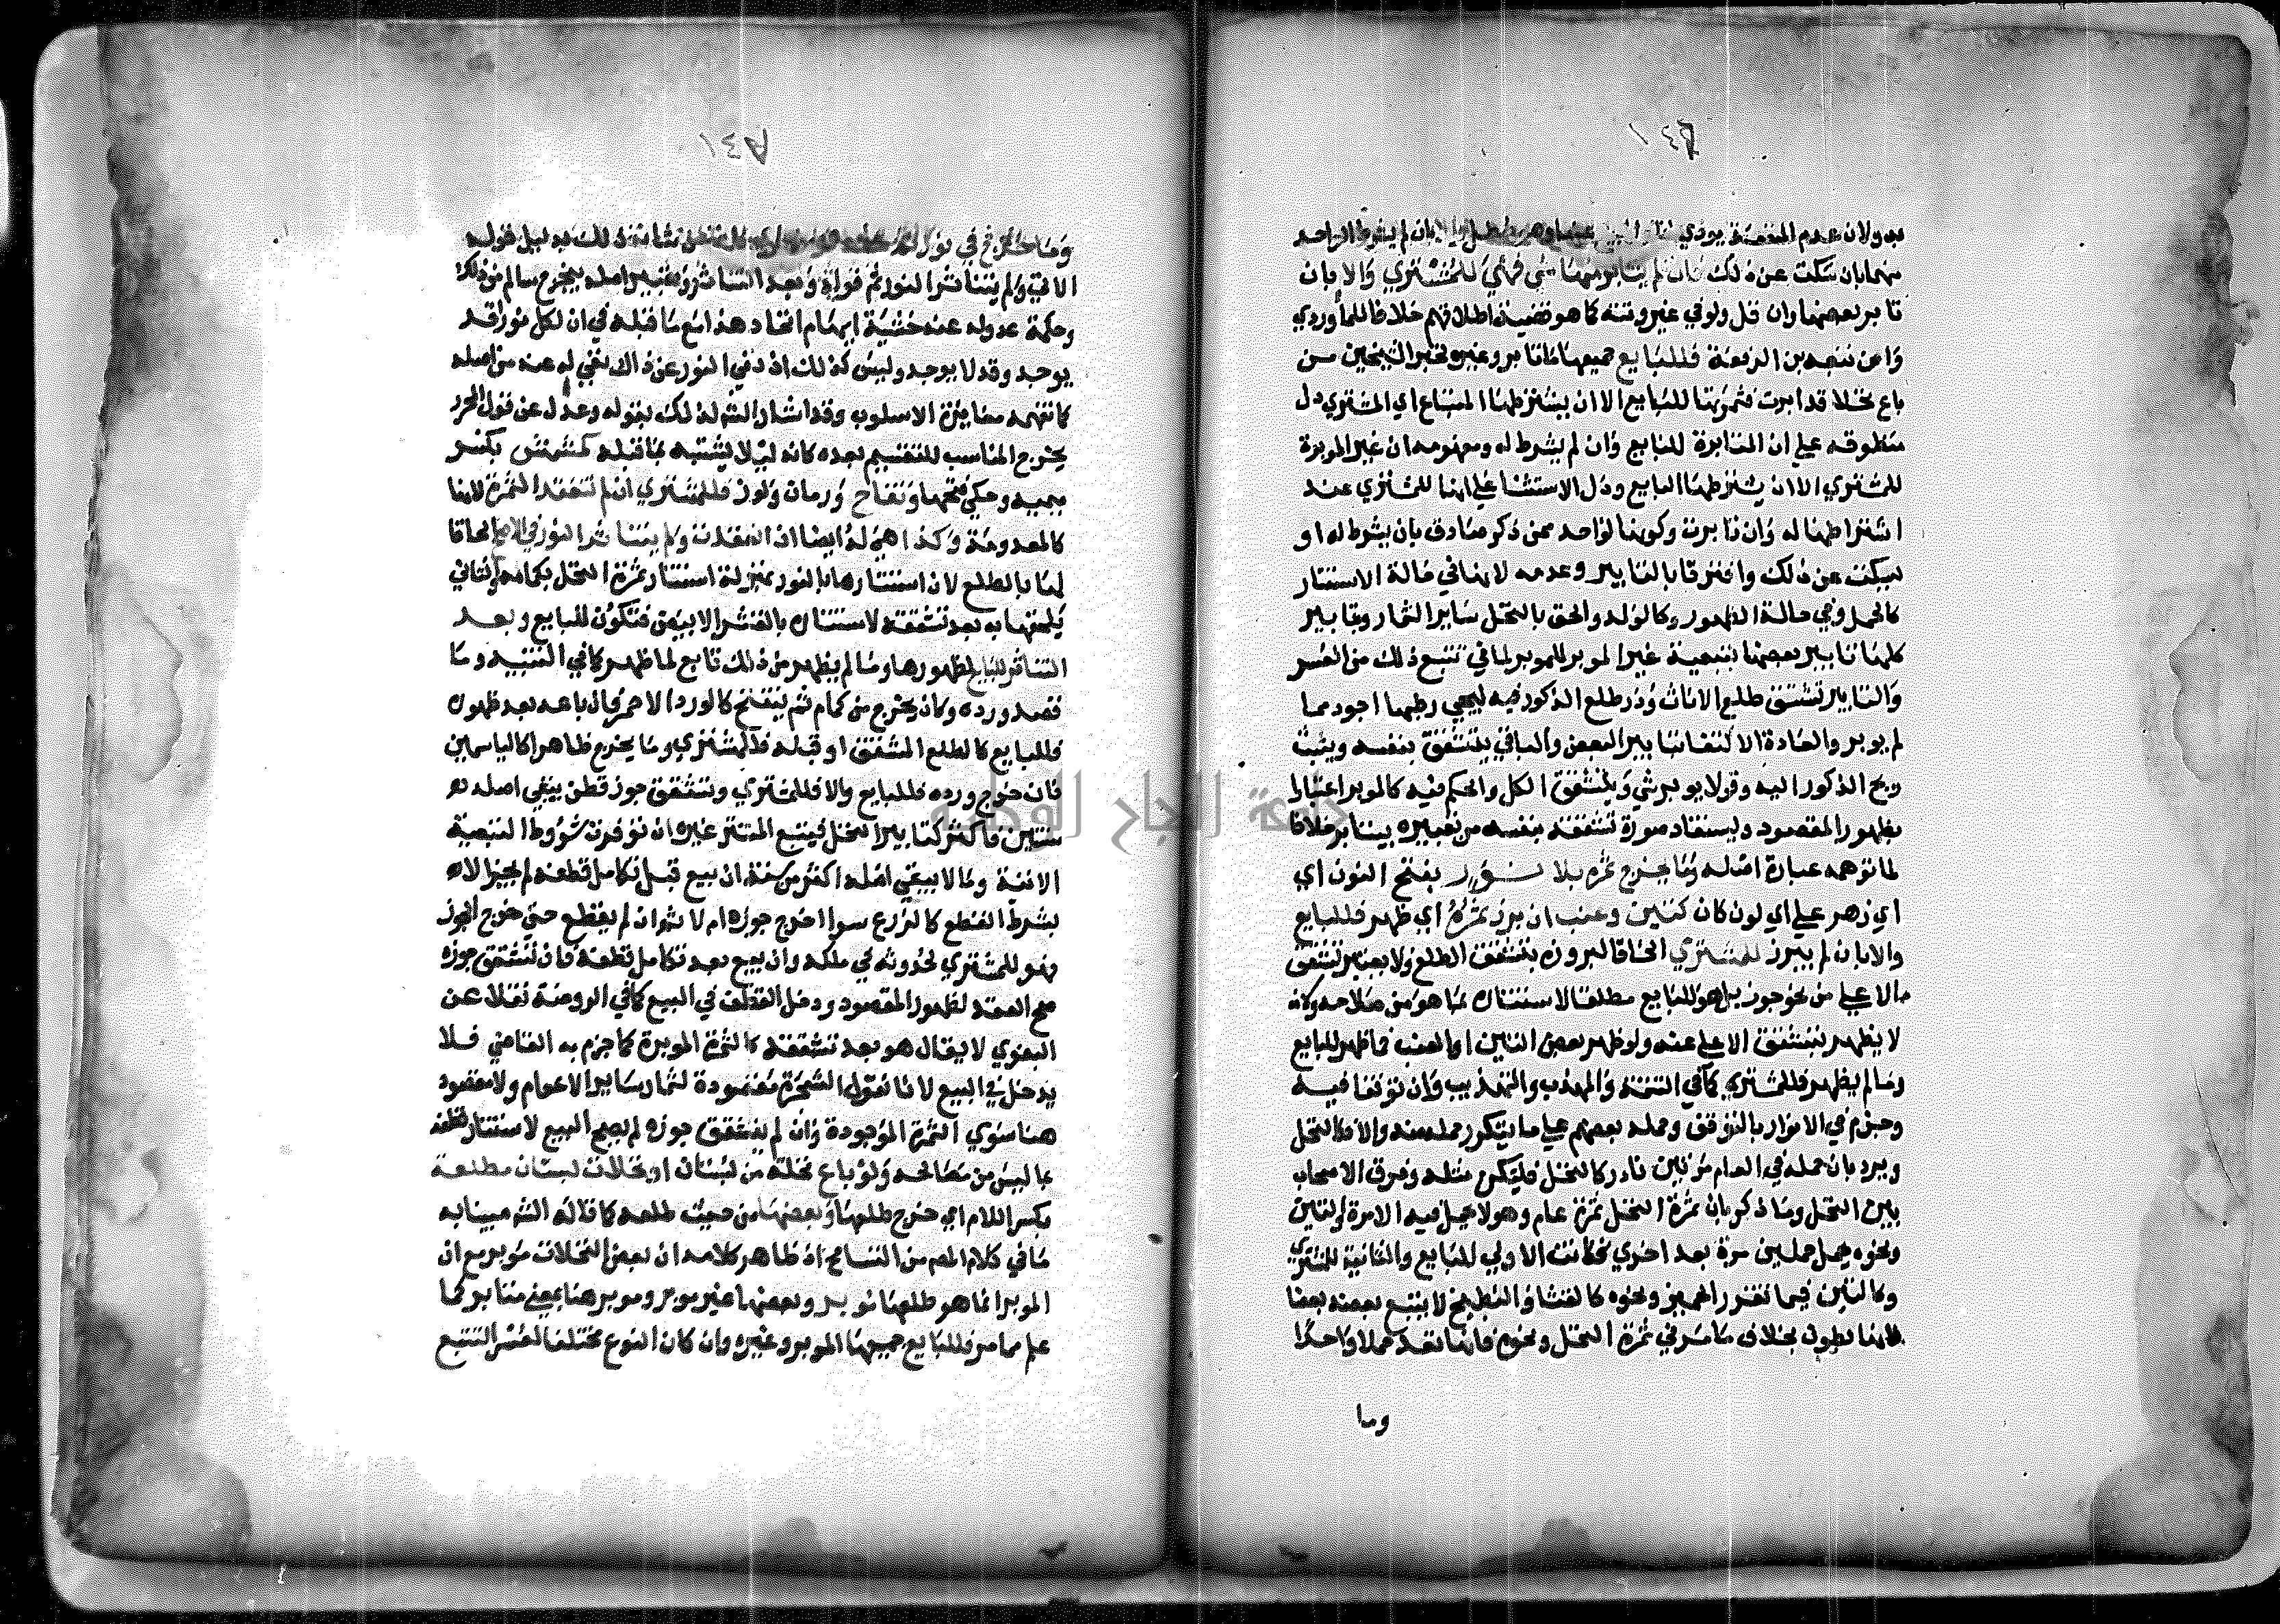 به ولان عدم المنفعة يودي بان لم يشرط لواحد
منهما بان سكت عن ذلك فان لم يتابر منها شي فهي للمشتري والا بان
تابر بعضها وان قل ولو في غير وقته كما هو قضية اطلاقهم خلافا للماوردي
وا من تبعه بن الرفعة فللبايع جميعها ما تابر وغيره لخبر الشيخين من
باع نخلا قد ابرت فثمرتها للبايع الا ان يشترطها المبتاع اي المشتري دل
منطوقه علي ان المتابرة للبايع وان لم يشرط له ومفهومه ان غير الموبرة
للمشتري الا ان يشترطها البايع ودل الاستثنا علي انها للمشتري عند
اشتراطها له وان تابرت وكونها لواحد ممن ذكر صادق بان يشرط له او
يسكت عن ذلك وافترقا بالتابير وعدمه لانها في حالة الاستتار
كالحمل وفي حالة الظهور كالولد والحق بالنخل ساير الثمار وبتابير
كلها تابير بعضها بتبعية غير الموبر للموبر لما في تتبع ذلك من العسر
والتابير تشقق طلع الاناث وذر طلع الذكور فيه ليجي رطبها اجود مما
لم يوبر والعادة الاكتفا بتابير البعض والباقي يتشقق بنفسه وينبث
ريح الذكور اليه وقد لا يوبر شي ويتشقق الكل والحكم فيه كالموبر اعتبارا
بظهور المقصود ويستفاد صورة تشققه بنفسه من تعبيره بيتابر خلافا
لما توهمه عبارة اصله وما يخرج ثمره بلا نور بفتح النون اي
اي زهر علي اي لون كان كتين وعنب ان برز ثمره اي ظهر فللبايع
والا بان لم يبرز للمشتري الحاقا لبروزه بتشقق الطلع ولا يعتبر تشقق
الاعلي من نحو جوز بل هو للبايع مطلقا لاستتاره بما هو من صلاحه ولانه
لا يظهر بتشقق الاعلي عنه ولو ظهر بعض التين او العنب فما ظهر للبايع
وما لم يظهر فللمشتري كما في التتمة والمهذب والتهذيب وان توقفا فيه
وجزم في الانوار بالتوقف وحمله بعضهم علي ما يتكرر حمله منه والا فكالنخل
ويرد بان حمله في العام مرتين نادر كالنخل فليكن مثله وفرق الاصحاب
بين النخل وما ذكر بان ثمرة النخل ثمرة عام وهو لا يحمل فيه الا مرة والتين
ونحوه يحمل حملين مرة بعد اخري فكانت الاولي للبايع والثانية للمشتري
وكالتين فيما تقرر الجميز ونحوه كالقثا والبطيخ لا يتبع بعضه بعضا
لانها بطون بخلاف ما مر في ثمرة النخل ونحوه فانها تعد حملا واحدا
وما
وما خرج في نور ذلك بدليل قوله
الاتي ولم يتناثر النور ثم قوله وبعد التناثر وتعبير اصله بيخرج سالم من ذلك
وحكمة عدوله عنه خشية ايهام اتحاد هذا مع ما قبله في ان لكل نورا قد
يوجد وقد لا يوجد وليس كذلك اذ نفي النور عن ذاك نفي له عنه من اصله
كما تفهمه مغايرة الاسلوب وقد اشار الشارح لذلك بقوله وعدل عن قول المحرر
يخرج المناسب للتقسيم بعده كانه ليلا يشتبه بما قبله كمشمش بكسر
ميميه وحكي فتحهما وتفاح ورمان ولوز فللمشتري ان لم تنعقد الثمرة لانها
كالمعدومة وكذا هي له ايضا ان انعقدت ولم يتناثر النور في الاصح الحاقا
لها بالطلع لان استتارها بالنور بمنزلة استتار ثمرة النخل بكمامه والثاني
يلحقها به بعد تشققه لاستتاره بالقشر الابيض فتكون للبايع وبعد
التناثر للبايع لظهورها وما لم يظهر من ذلك تابع لما ظهر كما في التنبيه وما
قصد ورده وكان يخرج من كمام ثم ينفتح كالورد الاحمر فان باعه بعد ظهوره
فللبايع كالطلع المشقق او قبله فللمشتري وما يخرج ظاهرا كالياسمين
فان خرج ورده فللبايع والا فللمشتري وتشقق جوز قطن يبقي اصله
سنتين فاكثر كتابير النخل فيتبع المستتر غيره ان توفرت شروط التبعية
الاتية وما لا يبقي اصله اكثر من سنة ان بيع قبل تكامل قطنه لم يجز الا
بشرط القطع كالزرع سوا اخرج جوزه ام لا ثم ان لم يقطع حتي خرج الجوز
فهو للمشتري لحدوثه في ملكه وان بيع بعد تكامل قطنه فان تشقق جوزه
صح العقد لظهور المقصود ودخل القطن في البيع كما في الروضة نقلا عن
البغوي لا يقال هو بعد تشققه كالثمرة الموبرة كما جزم به القاضي فلا
يدخل في البيع لانا نقول الشجرة مقصودة لثمار ساير الاعوام ولا مقصود
هنا سوي الثمرة الموجودة وان لم يتشقق جوزه لم يصح البيع لاستتار قطنه
بما ليس من مصالحه ولو باع نخلة من بستان او نخلات بستان مطلعة
بكسر اللام اي خرج طلعها وبعضها من حيث طلعه كما قاله الشارح مبينا به
ما في كلام المصنف من التسامح اذ ظاهر كلامه ان بعض النخلات موبر مع ان
الموبر انما هو طلعها موبر وبعضها غير موبر وموبر هنا بمعني متابر كما
علم مما مر فللبايع جميعها الموبر وغيره وان كان النوع مختلفا لعسر التتبع